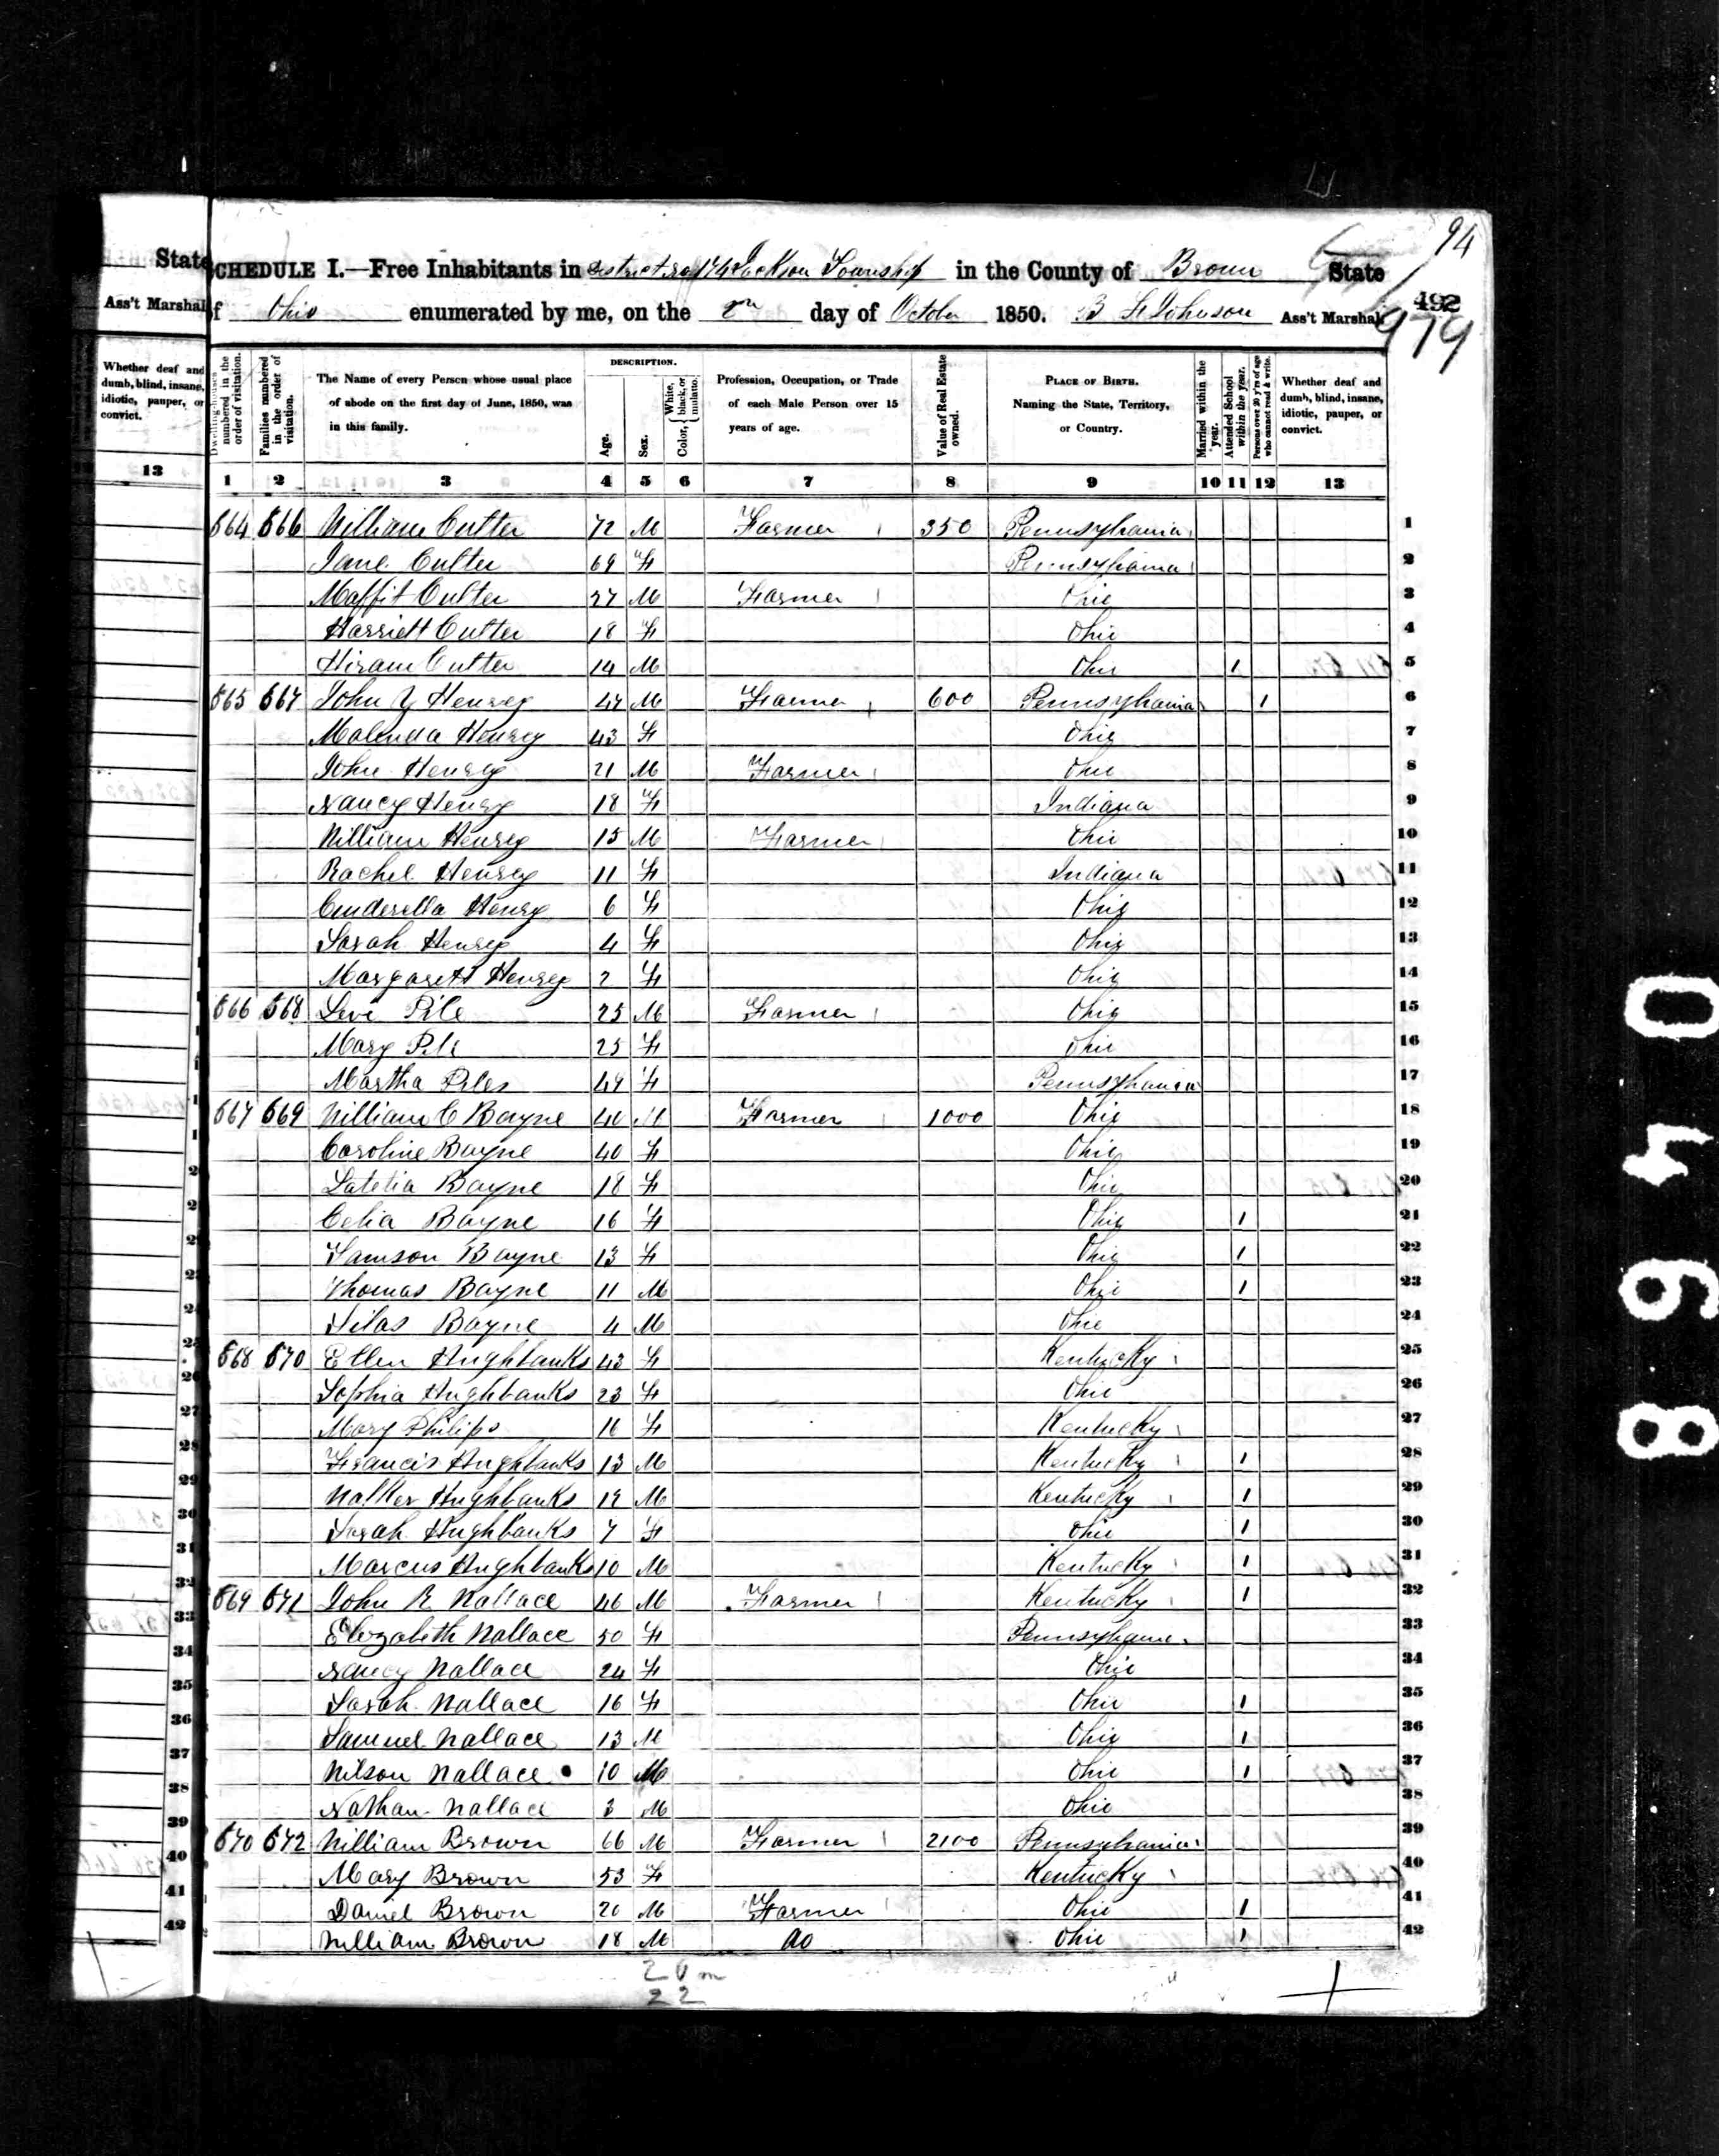 94
State SCHEDULE I.—Free Inhabitants in District No 174 Jackson Township in the County of Brown State
Ass't Marshal of Ohio enumerated by me, on the 2nd day of October 1850. B F Johnson Ass't Marshal
492
979
Whether deaf and dumb, blind, insane, idiotic, pauper, or convict.
Dwelling-houses numbered in the order of visitation.
Families numbered in the order of visitation.
The Name of every Person whose usual place of abode on the first day of June, 1850, was in this family.
DESCRIPTION.
Age.
Sex.
Color, { White, black, or mulatto.
Profession, Occupation, or Trade of each Male Person over 15 years of age.
Value of Real Estate owned.
PLACE OF BIRTH. Naming the State, Territory, or Country.
Married within the year.
Attended School within the year.
Persons over 20 y'rs of age who cannot read & write.
Whether deaf and dumb, blind, insane, idiotic, pauper, or convict.
13 1 2 3 4 5 6 7 8 9 10 11 12 13
664 666 William Culter 72 M Farmer 350 Pennsylvania 1
Jane Culter 69 F Pennsylvania 2
Maffit Culter 27 M Farmer Ohio 3
Harriett Culter 18 F Ohio 4
Hiram Culter 14 M Ohio 1 5
665 667 John Y Henrey 47 M Farmer 600 Pennsylvania 1 6
Malinda Henrey 43 F Ohio 7
John Henrey 21 M Farmer Ohio 8
Nancy Henry 18 F Indiana 9
William Henrey 15 M Farmer Ohio 10
Rachel Henrey 11 F Indiana 11
Cinderella Henry 6 F Ohio 12
Sarah Henrey 4 F Ohio 13
Margarett Henrey 2 F Ohio 14
666 668 Levi Pile 25 M Farmer Ohio 15
Mary Pile 25 F Ohio 16
Martha Piles 49 F Pennsylvania 17
667 669 William C Bayne 40 M Farmer 1000 Ohio 18
Caroline Bayne 40 F Ohio 19
Latetia Bayne 18 F Ohio 20
Celia Bayne 16 F Ohio 1 21
Samson Bayne 13 F Ohio 1 22
Thomas Bayne 11 M Ohio 1 23
Silas Bayne 4 M Ohio 24
668 670 Ellen Hughbanks 43 F Kentucky 25
Sophia Hughbanks 23 F Ohio 26
Mary Philips 16 F Kentucky 27
Francis Hughbanks 13 M Kentucky 1 28
Walker Hughbanks 12 M Kentucky 1 29
Sarah Hughbanks 7 F Ohio 1 30
Marcus Hughbanks 10 M Kentucky 1 31
669 671 John R Wallace 46 M Farmer Kentucky 1 32
Elizabeth Wallace 50 F Pennsylvania 33
Nancy Wallace 24 F Ohio 34
Sarah Wallace 16 F Ohio 1 35
Samuel Wallace 13 M Ohio 1 36
Wilson Wallace 10 M Ohio 1 37
Nathan Wallace 3 M Ohio 38
670 672 William Brown 66 M Farmer 2100 Pennsylvania 39
Mary Brown 53 F Kentucky 40
Daniel Brown 20 M Farmer Ohio 1 41
William Brown 18 M do Ohio 1 42
20 m
22
04698